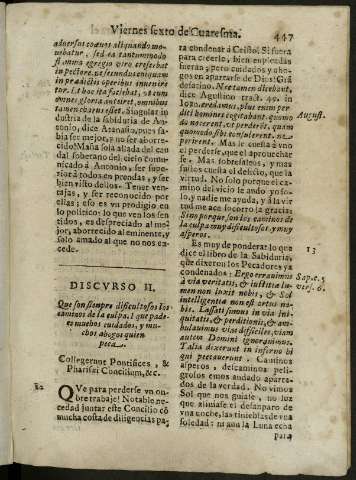 Viernes sexto de Cuaresma. 447
aduersus coæuos aliquando mo-
uebatur, sed ea tantummodo
flamma egregio viro crescebat
in pectore, ne secundus cuiquam
in prædictis operibus inueniretur
tur. Et hoc ita faciebat, vt cum
omnes gloria anteiret, omnibus
tamen charus esset. Singular in-
dustria de la sabiduria de An-
tonio, dice Atanasio, pues sa-
bia ser mejor, y no ser aborre-
cido! Maña sola aliada del cau
dal soberano del cielo comu-
nicado à Antonio, ser supe-
rior à todos en prendas, y ser
bien visto dellos. Tener ven-
tajas, y ser reconocido por
ellas; eso es vn prodigio en
lo politico: lo que ven los sen
tidos, es despreciado al me-
jor, aborrecido al eminente, y
solo amado al que no nos ex-
cede.
DISCVRSO II.
Que son siempre dificultosos los
caminos de la culpa, i que pade-
ce muchos cuidados, y mu-
chos ahogos quien
peca.
Collegerunt Pontifices, &
Pharisæi Concilium, &c.
12 QVe para perderse vn on-
bre trabaje! Notable ne-
cedad juntar este Concilio cõ
mucha costa de diligencias pa,
ra condenar à Cristo! Si fuera
para creerle, bien enpleadas
fueran; pero cuidados y aho-
gos en apartarse de Dios! Grã
desatino. Nec tamen dicebant,
dice Agustino tract. 49. in
Ioan. credamus, plus enim per
diti homines cogitabant quomo
do nocerent, vt perderet, quam
quomodo sibi consulerent, ne pe-
rirent. Mas le cuesta à vno
el perderse, que el aprouechar
se. Mas sobresaltos, y mas
sustos cuesta el delicto, que la
virtud. No solo porque el ca-
mino del vicio le ando yo so-
lo, y nadie me ayuda, y à la vir
tud me ace socorro la gracia:
Sino porque son los caminos de
la culpa muy dificultosos, y muy
asperos.
August.
13
Es muy de ponderar lo que
dice el libro de la Sabiduria,
que dixeron los Pecadores ya
condenados: Ergo errauimus
à via veritatis, & iustitiæ lu-
men non luxit nobis, & Sol
intelligentiæ non est ortus no-
bis. Lassati sumus in via ini-
quitatis, & perditionis, & am-
bulauimus vias difficiles, viam
autem Domini ignorauimus.
Talia dixerunt in inferno hi
qui peccauerunt. Caminos
asperos, descaminos peli-
grosos emos andado aparta-
dos de la verdad. No vimos
Sol que nos guiase, no luz
que aliuiase el desanparo de
vna noche, las tinieblas de vna
soledad: ni aun la Luna echa
para
Sap. c. 5.
vers. 6.